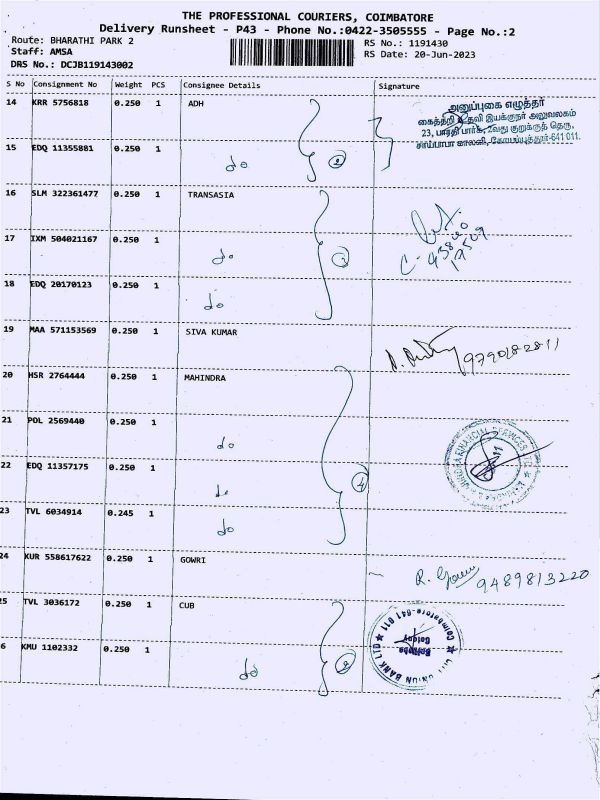 THE PROFESSIONAL COURIERS, COIMBATORE
Delivery Runsheet - P43 - Phone No.:0422-3505555 - Page No.:2
Route: BHARATHI PARK 2
RS No.: 1191430
Staff: AMSA
RS Date: 20-Jun-2023
DRS No.: DCJB119143002
S No Consignment No Weight PCS Consignee Details Signature
14 KRR 5756818 0.250 1 ADH
அனுப்புகை எழுத்தர்
கைத்தறி உதவி இயக்குநர் அலுவலகம்
23, பாரதி பார்க், 2வது குறுக்குத் தெரு,
சாய்பாபா காலனி, கோயம்புத்தூர்-641 011.
15 EDQ 11355881 0.250 1 do 2
16 SLM 322361477 0.250 1 TRANSASIA
17 IXM 504021167 0.250 1 do 3
18 EDQ 20170123 0.250 1 do
19 MAA 571153569 0.250 1 SIVA KUMAR 9790182811
20 HSR 2764444 0.250 1 MAHINDRA
21 POL 2569440 0.250 1 do
22 EDQ 11357175 0.250 1 do 4
23 TVL 6034914 0.245 1 do
24 KUR 558617622 0.250 1 GOWRI R. Gowri 9489813220
25 TVL 3036172 0.250 1 CUB
Coimbatore-641 011
Colony
UNION BANK LTD
6 KMU 1102332 0.250 1 do 2